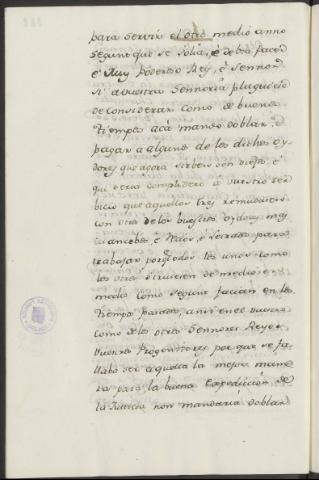 para servir el otro medio anno
segunt que se solia, è debia facer
è Muy Poderoso Rey, è Sennor
si à vuestra Sennoria pluguiese
de considerar como de buenos
tiempos acá mandó doblar, è
pagar à algunos de los dichos oy-
dores que agora sirben con
que seria complidero à vuestro ser-
bicio que aquellos tres remudasen
con otros de los vuestros oydores mas
mancebos è è Letrados para
trabajar porque todos los unos como
los otros sirviesen de medio è
medio como segunt facian en los
tiempos pasados, ansi en el vuestro
como de los otros Sennores Reyes
vuestros Progenitores por que se fa-
llaba ser aquesta la mejor mane-
ra para la buena expedicion de
la Justicia non mandaria doblar